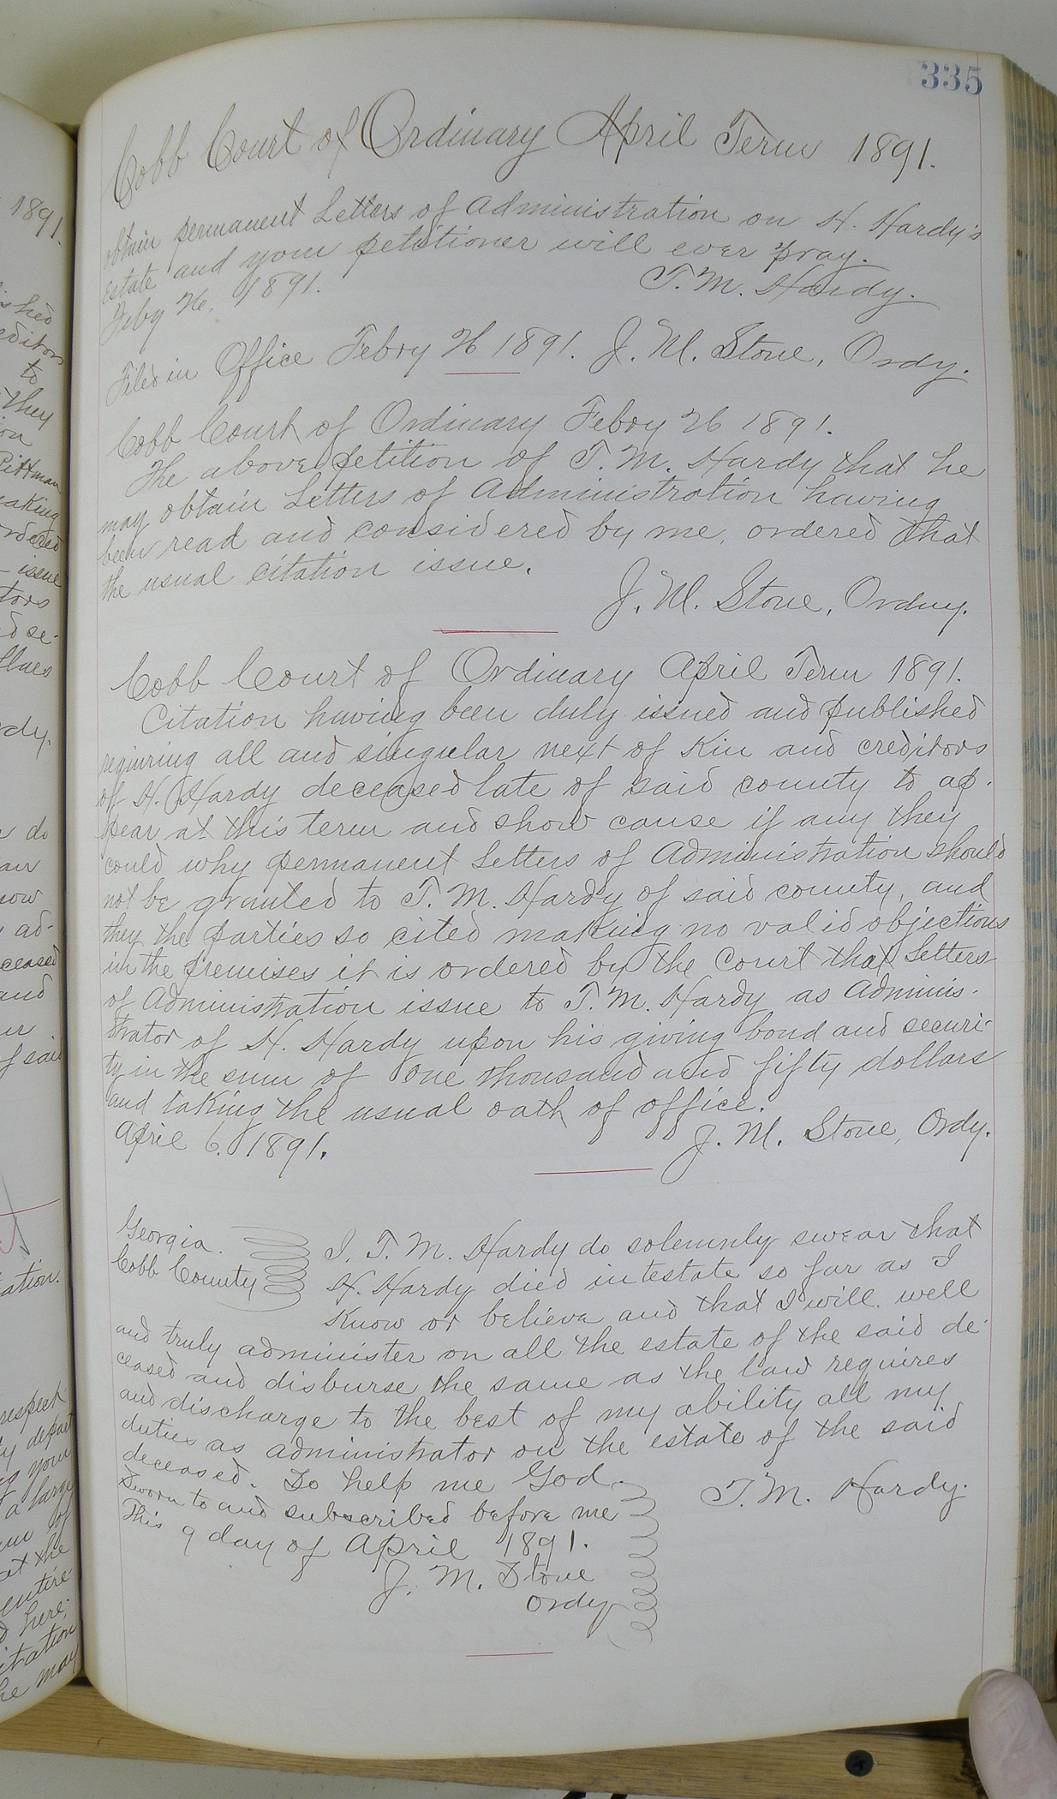 335
Cobb Court of Ordinary April Term 1891.
obtain permanent Letters of Administration on H. Hardy's
estate and your petitioner will ever pray.
Feby 26, 1891. T. M. Hardy.
Filed in Office Febry 26 1891. J. M. Stone, Ordy.
Cobb Court of Ordinary Febry 26 1891.
The above petition of T. M. Hardy that he
may obtain Letters of Administration having
been read and considered by me, ordered that
the usual citation issue.
J. M. Stone, Ordny.
Cobb Court of Ordinary April Term 1891.
Citation having been duly issued and published
requiring all and singular next of Kin and creditors
of H. Hardy deceased late of said county to ap-
pear at this term and show cause if any they
could why permanent Letters of Administration should
not be granted to T. M. Hardy of said county, and
they the parties so cited making no valid objections
in the premises it is ordered by the Court that Letters
of Administration issue to T. M. Hardy as Adminis-
trator of H. Hardy upon his giving bond and securi-
ty in the sum of One thousand and fifty dollars
and taking the usual oath of office.
April 6. 1891. J. M. Stone, Ordy.
Georgia.
Cobb County
I, T. M. Hardy do solemnly swear that
H. Hardy died intestate so far as I
Know or believe and that I will well
and truly administer on all the estate of the said de-
ceased and disburse the same as the law requires
and discharge to the best of my ability all my
duties as administrator on the estate of the said
deceased. So help me God.
Sworn to and subscribed before me T. M. Hardy.
This 9 day of April 1891.
J. M. Stone
Ordy
1891.
to
they
Pittman
issue
tors
rdy.
do
now
ad-
ceased
and
of said
respect
a large
at the
entire
here-
he may